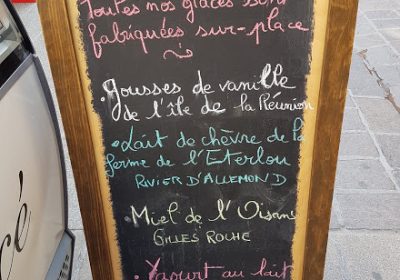 Toutes nos glaces sont
fabriquées sur-place
.Gousses de vanille
de l'île de la Réunion
.Lait de chèvre de la
ferme de l'Eterlou
RIVIER D'ALLEMOND
.Miel de l'Oisans
GILLES ROCHE
.Yaourt au lait
cé